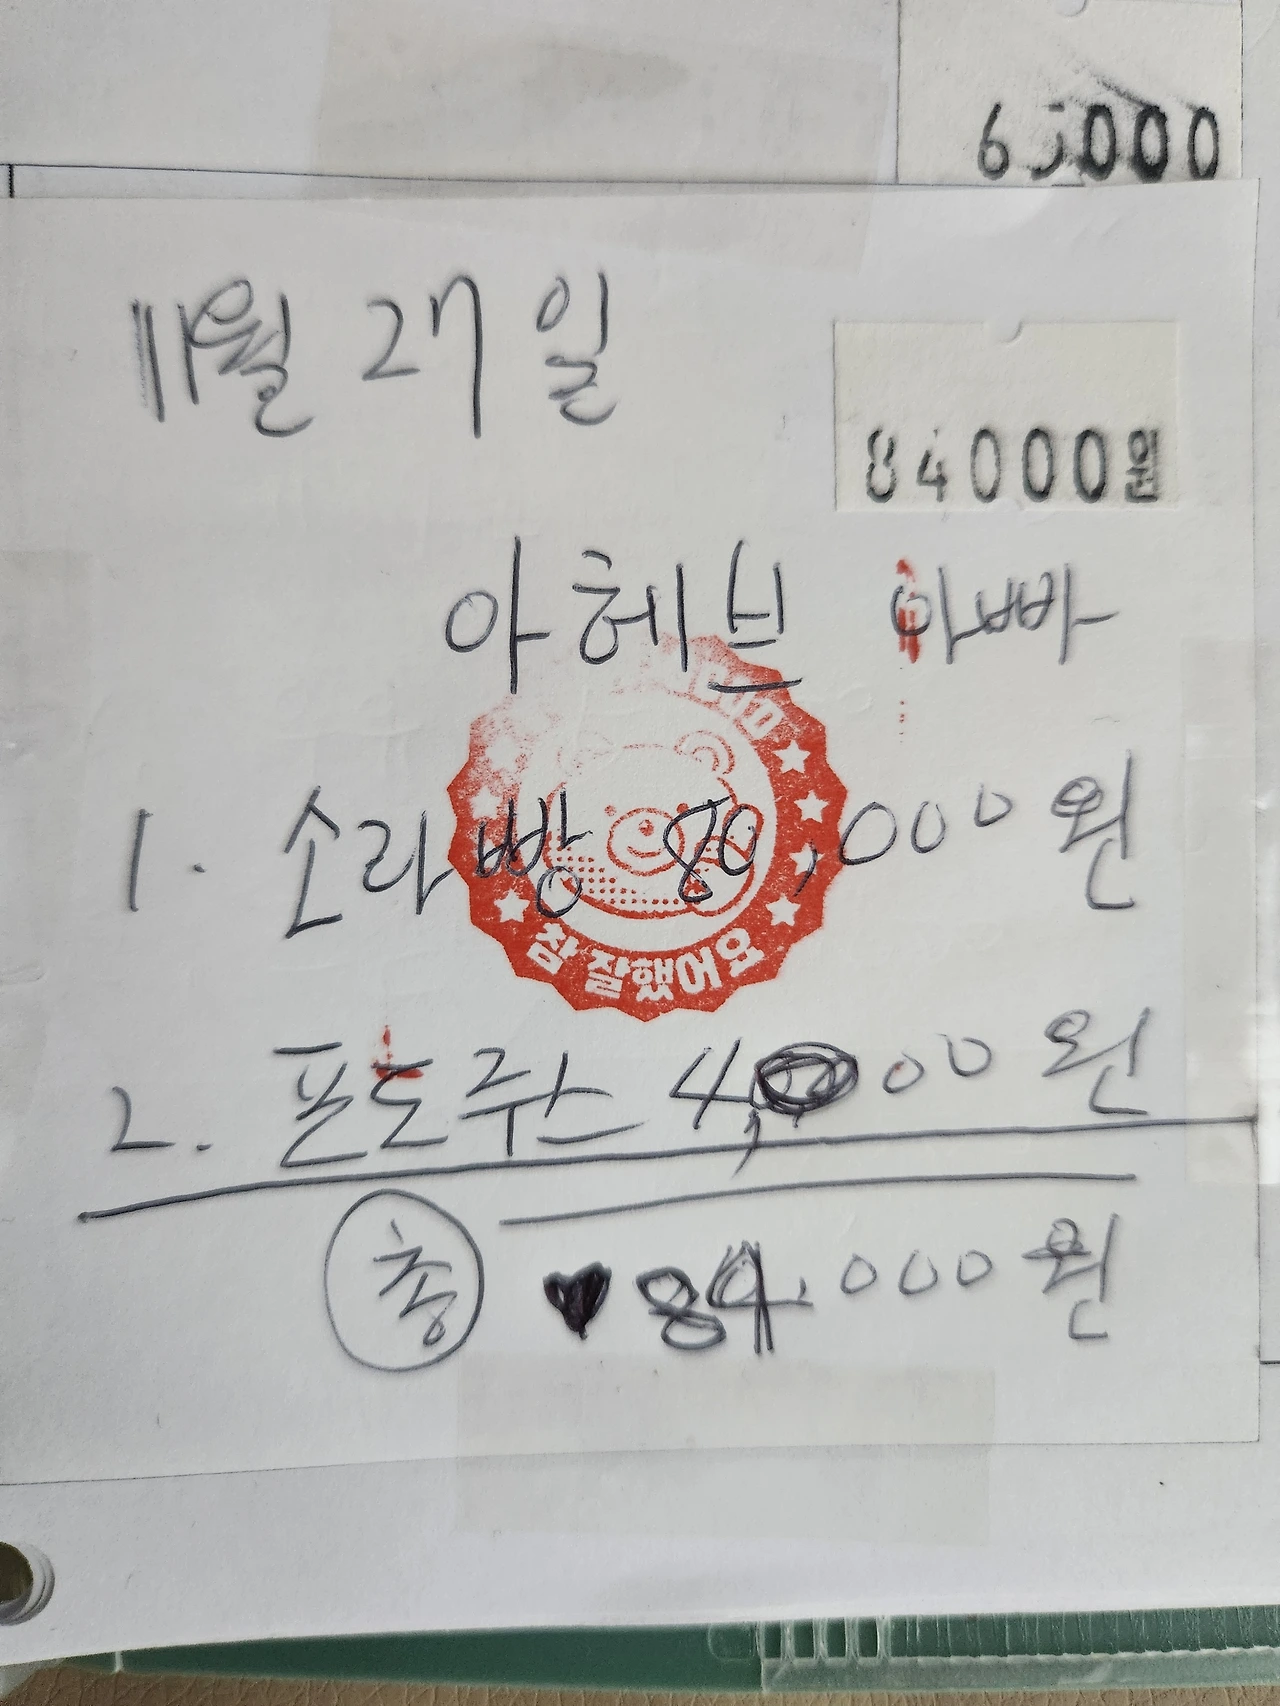 11월 27일
84000원
아헤브 아빠
1. 소라빵 80,000원
참 잘했어요
2. 포도주스 4,000원
총 ♥ 84,000원